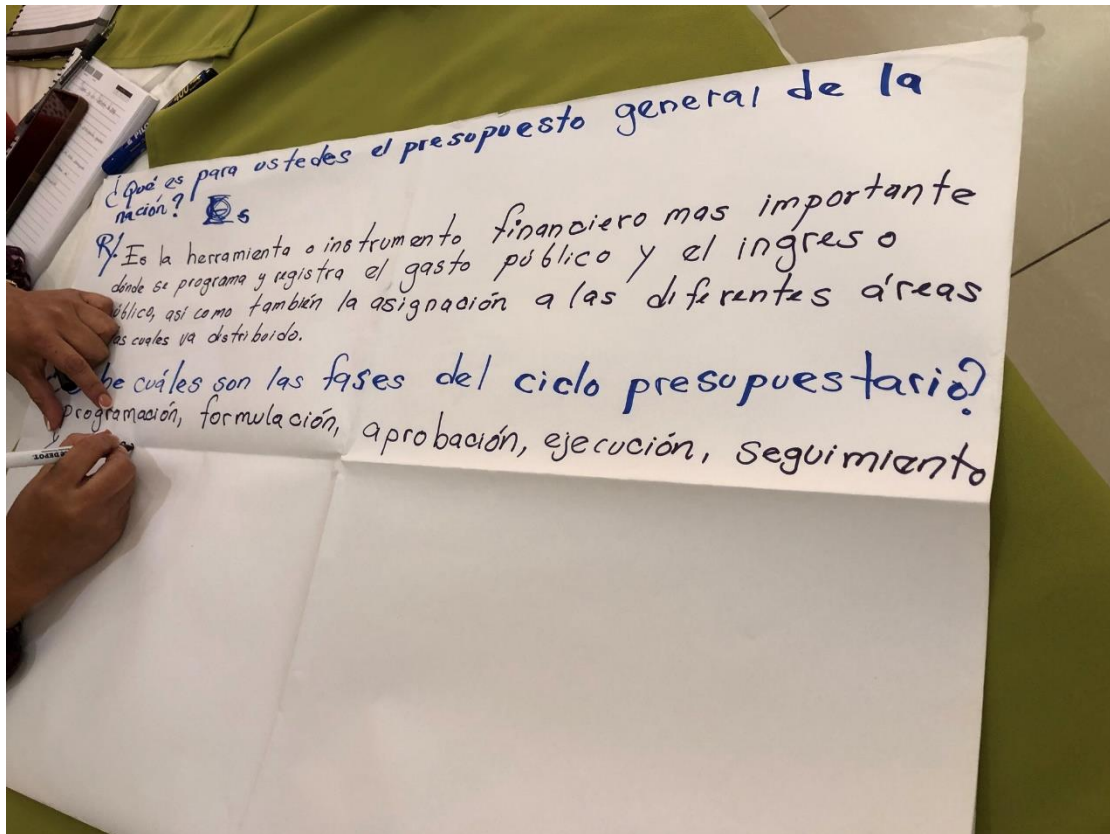 ¿Qué es para ustedes el presupuesto general de la
nación? Es
R/. Es la herramienta o instrumento financiero mas importante
dónde se programa y registra el gasto público y el ingreso
público, así como también la asignación a las diferentes áreas
as cuales va distribuido.
be cuáles son las fases del ciclo presupuestario?
programación, formulación, aprobación, ejecución, seguimiento
DEPOT